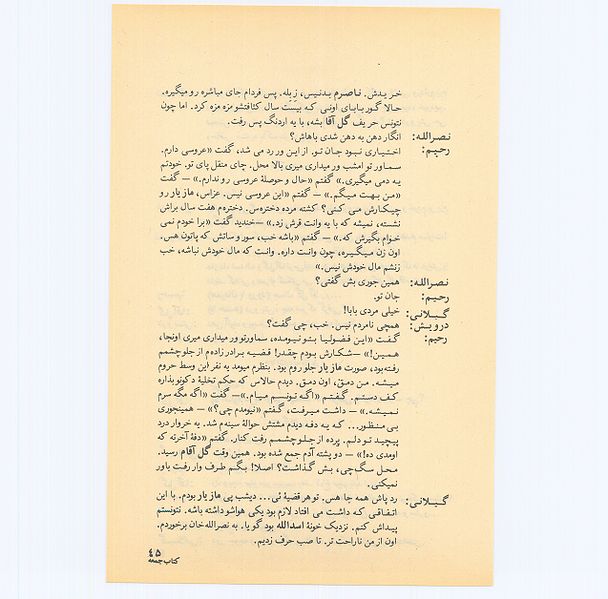 خریدش. ناصرم بدنیس، زبله. پس فردام جای مباشره رو میگیره.
حالا گوربابای اونی که بیست سال کثافتشو مزه مزه کرد. اما چون
نتونس حریف گل آقا بشه، با یه اردنگ پس رفت.
نصرالله: انگار دهن به دهن شدی باهاش؟
رحیم: اختیاری نبود جان تو. از این ور رد می شد، گفت «عروسی دارم.
سماور تو امشب ور میداری میری بالا محل. چای منقل پای تو. خودتم
یه دمی میگیری.» گفتم «حال و حوصلهٔ عروسی رو ندارم.» — گفت
«من بهت میگم.» — گفتم «این عروسی نیس. عزاس، هازیار رو
چیکارش می کنی؟ کشته مرده دختره‌س. دختره‌م هفت سال براش
نشسته، نمیشه که با یه وانت قرش زد.» —خندید گفت «برا خودم نمی
خوام بگیرش که.» — گفتم «باشه خب، سور و ساتش که پاتون هس.
اون زن میگیره، چون وانت داره. وانت که مال خودش نباشه، خب
زنشم مال خودش نیس.»
نصرالله: همین جوری بش گفتی؟
رحیم: جان تو.
گیلانی: خیلی مردی بابا!
درویش: همچی نامردم نیس. خب، چی گفت؟
رحیم: گفت «این فضولیا بتو نیومده، سماورتو ور میداری میری اونجا،
همین!» —شکارش بودم چقدر! قضیه برادرزاده م از جلو چشمم
رفته‌بود، صورت هازیار جلو روم بود. بنظرم میومد یه نفر این وسط حروم
میشه. من دمق، اون دمق. دیدم حالاس که حکم تخلیهٔ دکونو بذاره
کف دستم. گفتم «اگه تونسم میام.»— گفت «اگه مگه سرم
نمیشه.» — داشت میرفت، گفتم «نیومدم چی؟» — همینجوری
بی منظور... که یه دفه دیدم مشتش حوالهٔ سینه‌م شد. یه خروار درد
پیچید تو دلم. پرده از جلو چشمم رفت کنار. گفتم «دفهٔ آخرته که
اومدی ده!» — دو پشته آدم جمع شده بود. همین وقت گل آقام رسید.
محل سگ‌چی، بش گذاشت؟ اصلا! بگم طرف وار رفت باور
نمیکنی.
گیلانی: رد پاش همه جا هس. تو هر قضیهٔ ئی... دیشب پی هازیار بودم. با این
اتفاقی که داشت می افتاد لازم بود یکی هواشو داشته باشه. نتونستم
پیداش کنم. نزدیک خونهٔ اسدالله بود گویا. به نصرالله‌خان برخوردم.
اون از من ناراحت تر. تا صب حرف زدیم.
۴۵
کتاب جمعه